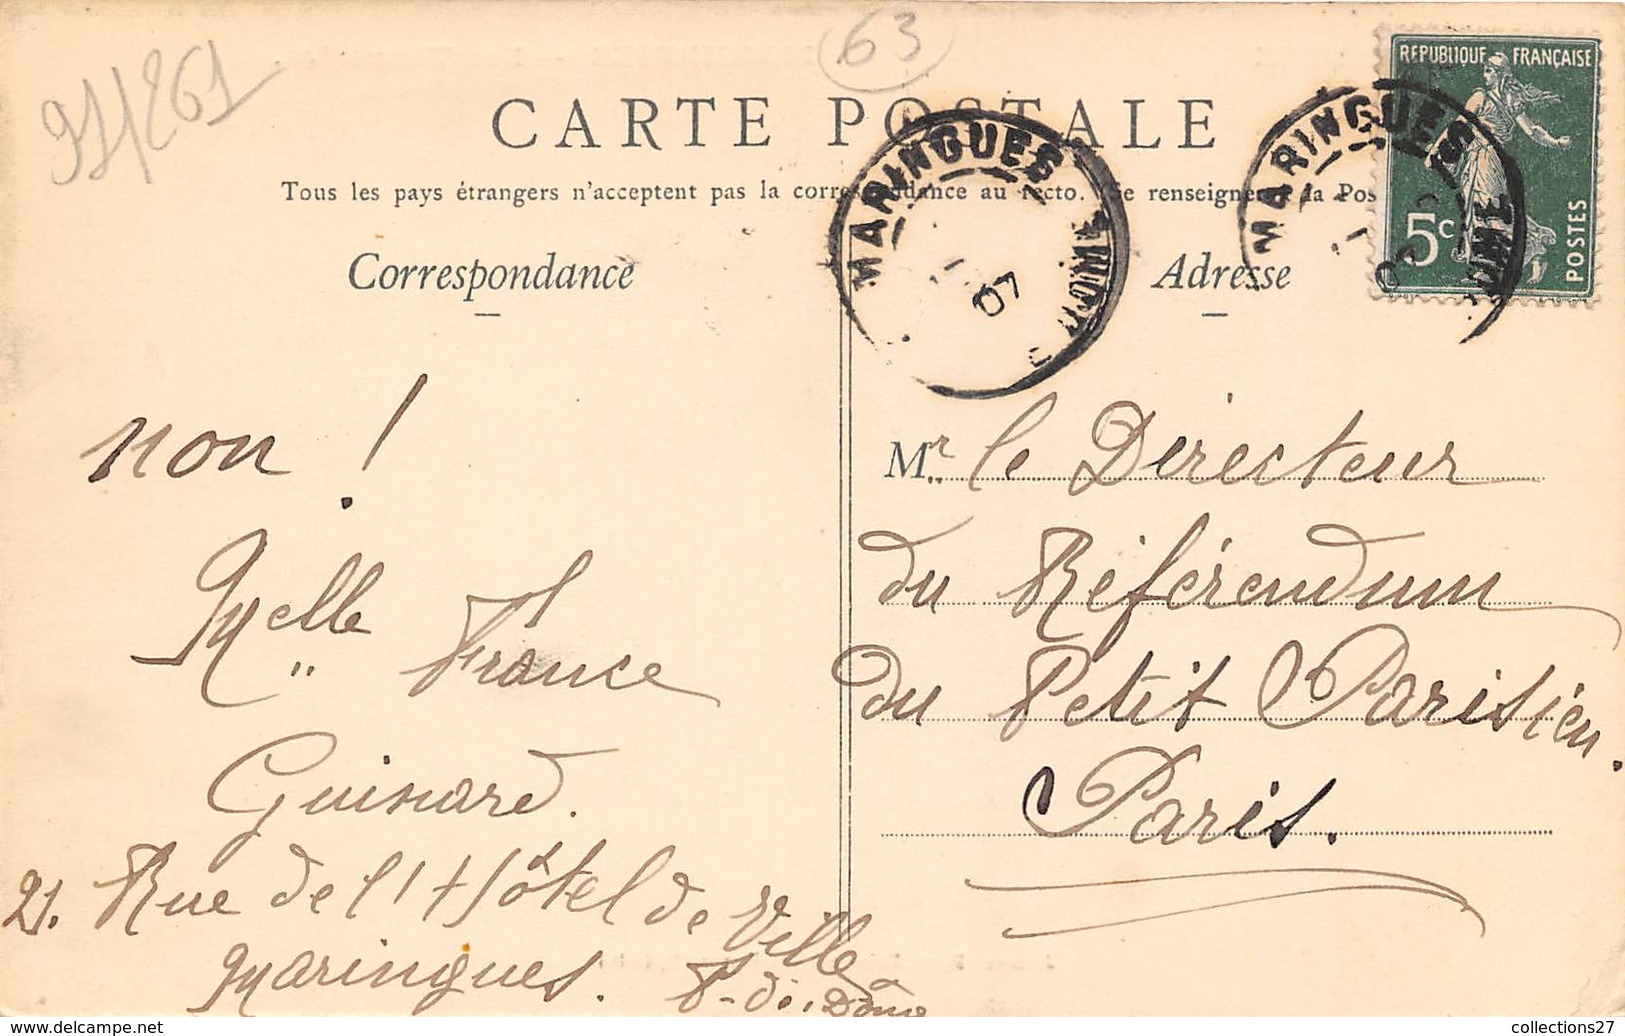 91/261
63
CARTE POSTALE
REPUBLIQUE FRANÇAISE
5c
POSTES
MARINGUES
07
MARINGUES
Tous les pays étrangers n'acceptent pas la correspondance au recto. Se renseigner à la Pos
Correspondance
Adresse
non !
Melle France
Guinard.
21. Rue de l'Hôtel de Ville
Maringues. P-d.. Dôme
Mr. le Directeur
du Référendum
du Petit Parisien.
Paris.
https://www.delcampe.net
collections27